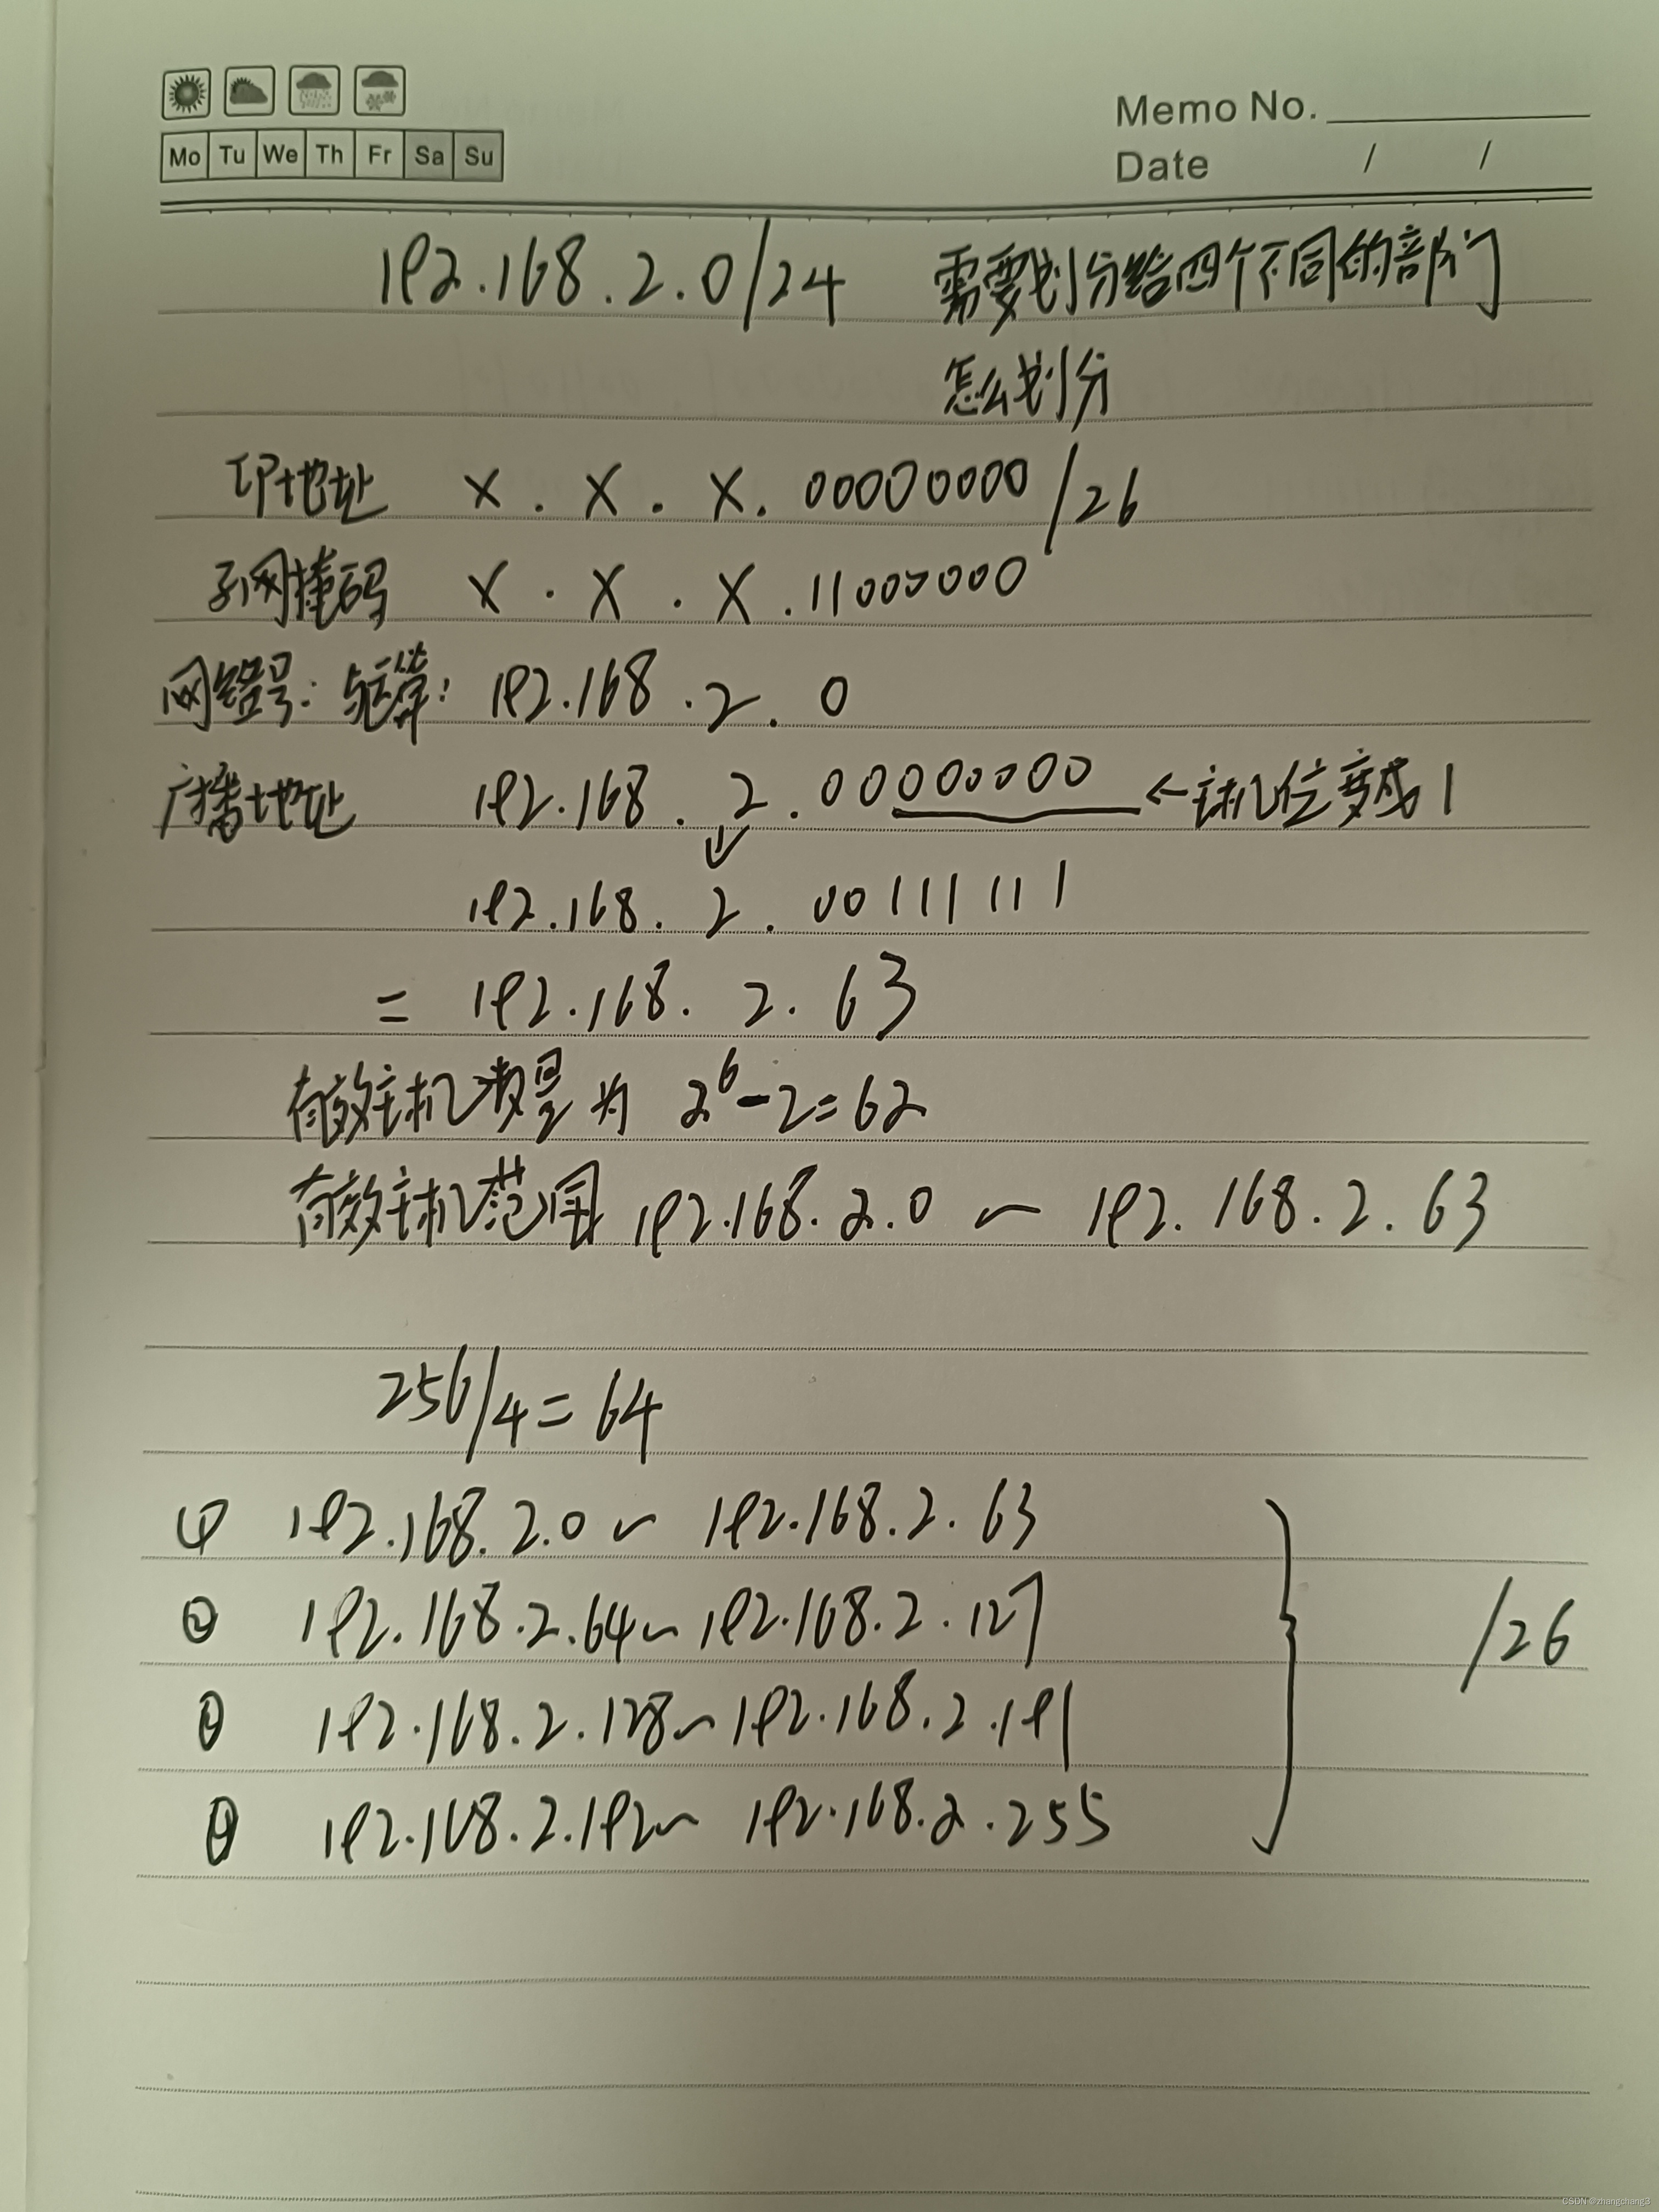 Memo No.
Mo Tu We Th Fr Sa Su
Date / /
192.168.2.0/24 需要划分给四个不同的部门
怎么划分
IP地址 X.X.X.00000000/26
子网掩码 X.X.X.11000000
网络号:与运算: 192.168.2.0
广播地址 192.168.2.00000000 ←主机位变成1
↓
192.168.2.00111111
= 192.168.2.63
有效主机数量为 2⁶-2=62
有效主机范围 192.168.2.0 ~ 192.168.2.63
256/4=64
① 192.168.2.0 ~ 192.168.2.63
② 192.168.2.64 ~ 192.168.2.127 /26
③ 192.168.2.128 ~ 192.168.2.191
④ 192.168.2.192 ~ 192.168.2.255
CSDN @zhangchang3